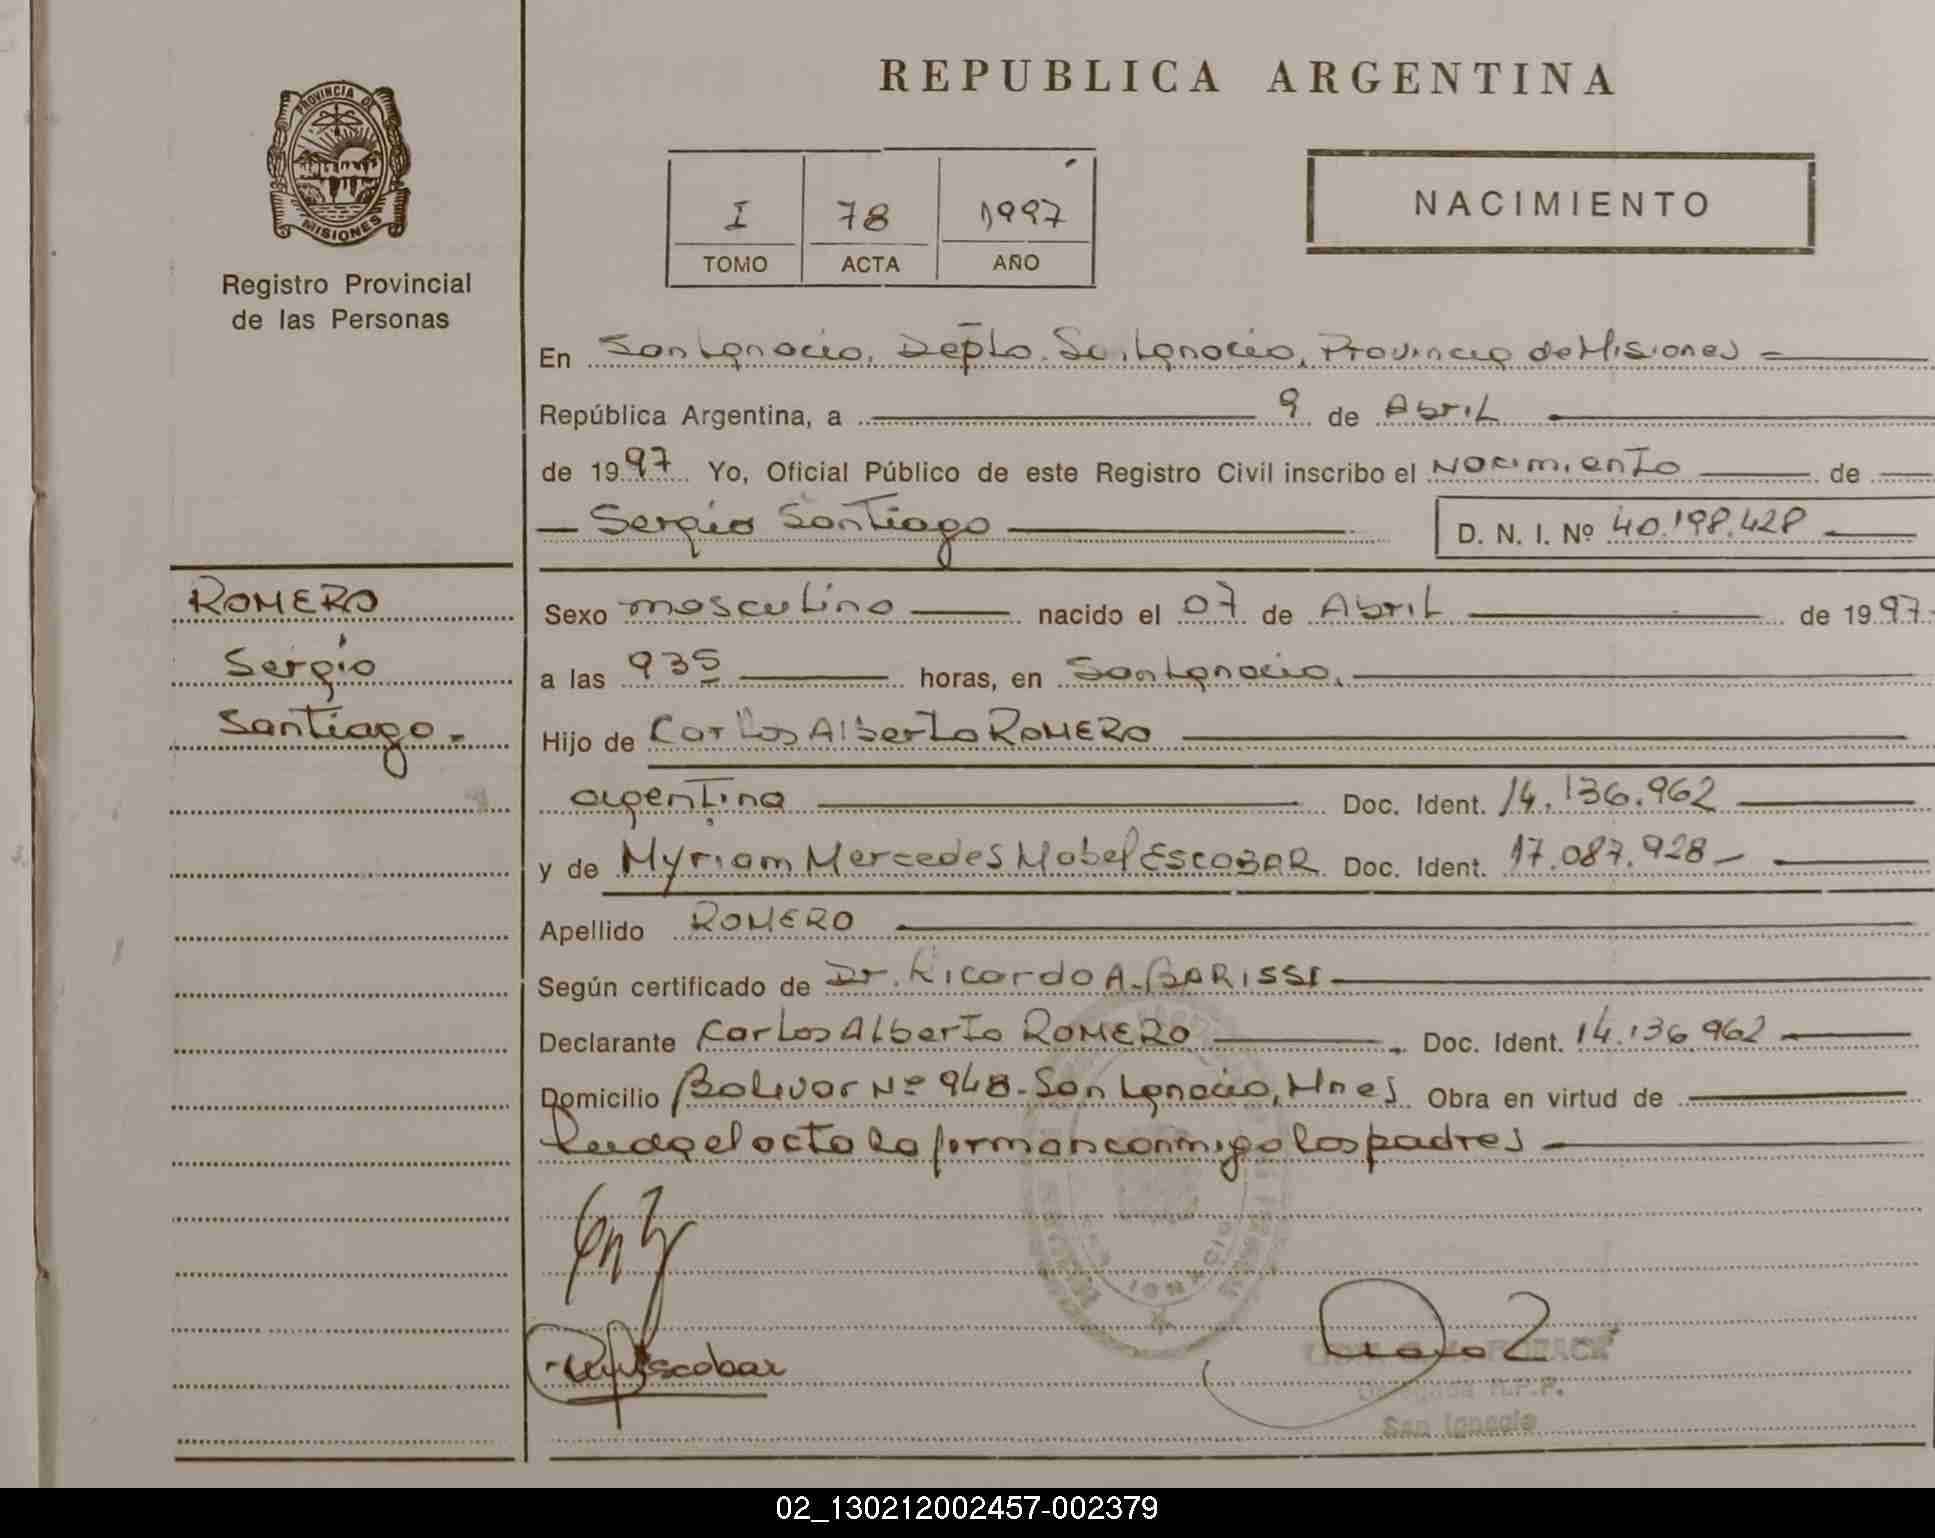 REPUBLICA ARGENTINA
PROVINCIA DE
MISIONES
Registro Provincial
de las Personas
I 78 1997
TOMO ACTA AÑO
NACIMIENTO
En San Ignacio, Depto. San Ignacio, Provincia de Misiones
República Argentina, a 9 de Abril
de 1997 Yo, Oficial Público de este Registro Civil inscribo el Nacimiento de
Sergio Santiago D. N. I. Nº 40.198.428
ROMERO
Sergio
Santiago.
Sexo masculino nacido el 07 de Abril de 1997
a las 935 horas, en San Ignacio.
Hijo de Carlos Alberto ROMERO
argentina Doc. Ident. 14.136.962
y de Myriam Mercedes Mabel ESCOBAR Doc. Ident. 17.087.928
Apellido ROMERO
Según certificado de Dr. Ricardo A. BARISSI
Declarante Carlos Alberto ROMERO Doc. Ident. 14.136.962
Domicilio Bolivar Nº 948 - San Ignacio, Mnes Obra en virtud de
Leida el acta la forman conmigo los padres
IGNACIO
Escobar
Delegada R.P.P.
San Ignacio
02_130212002457-002379